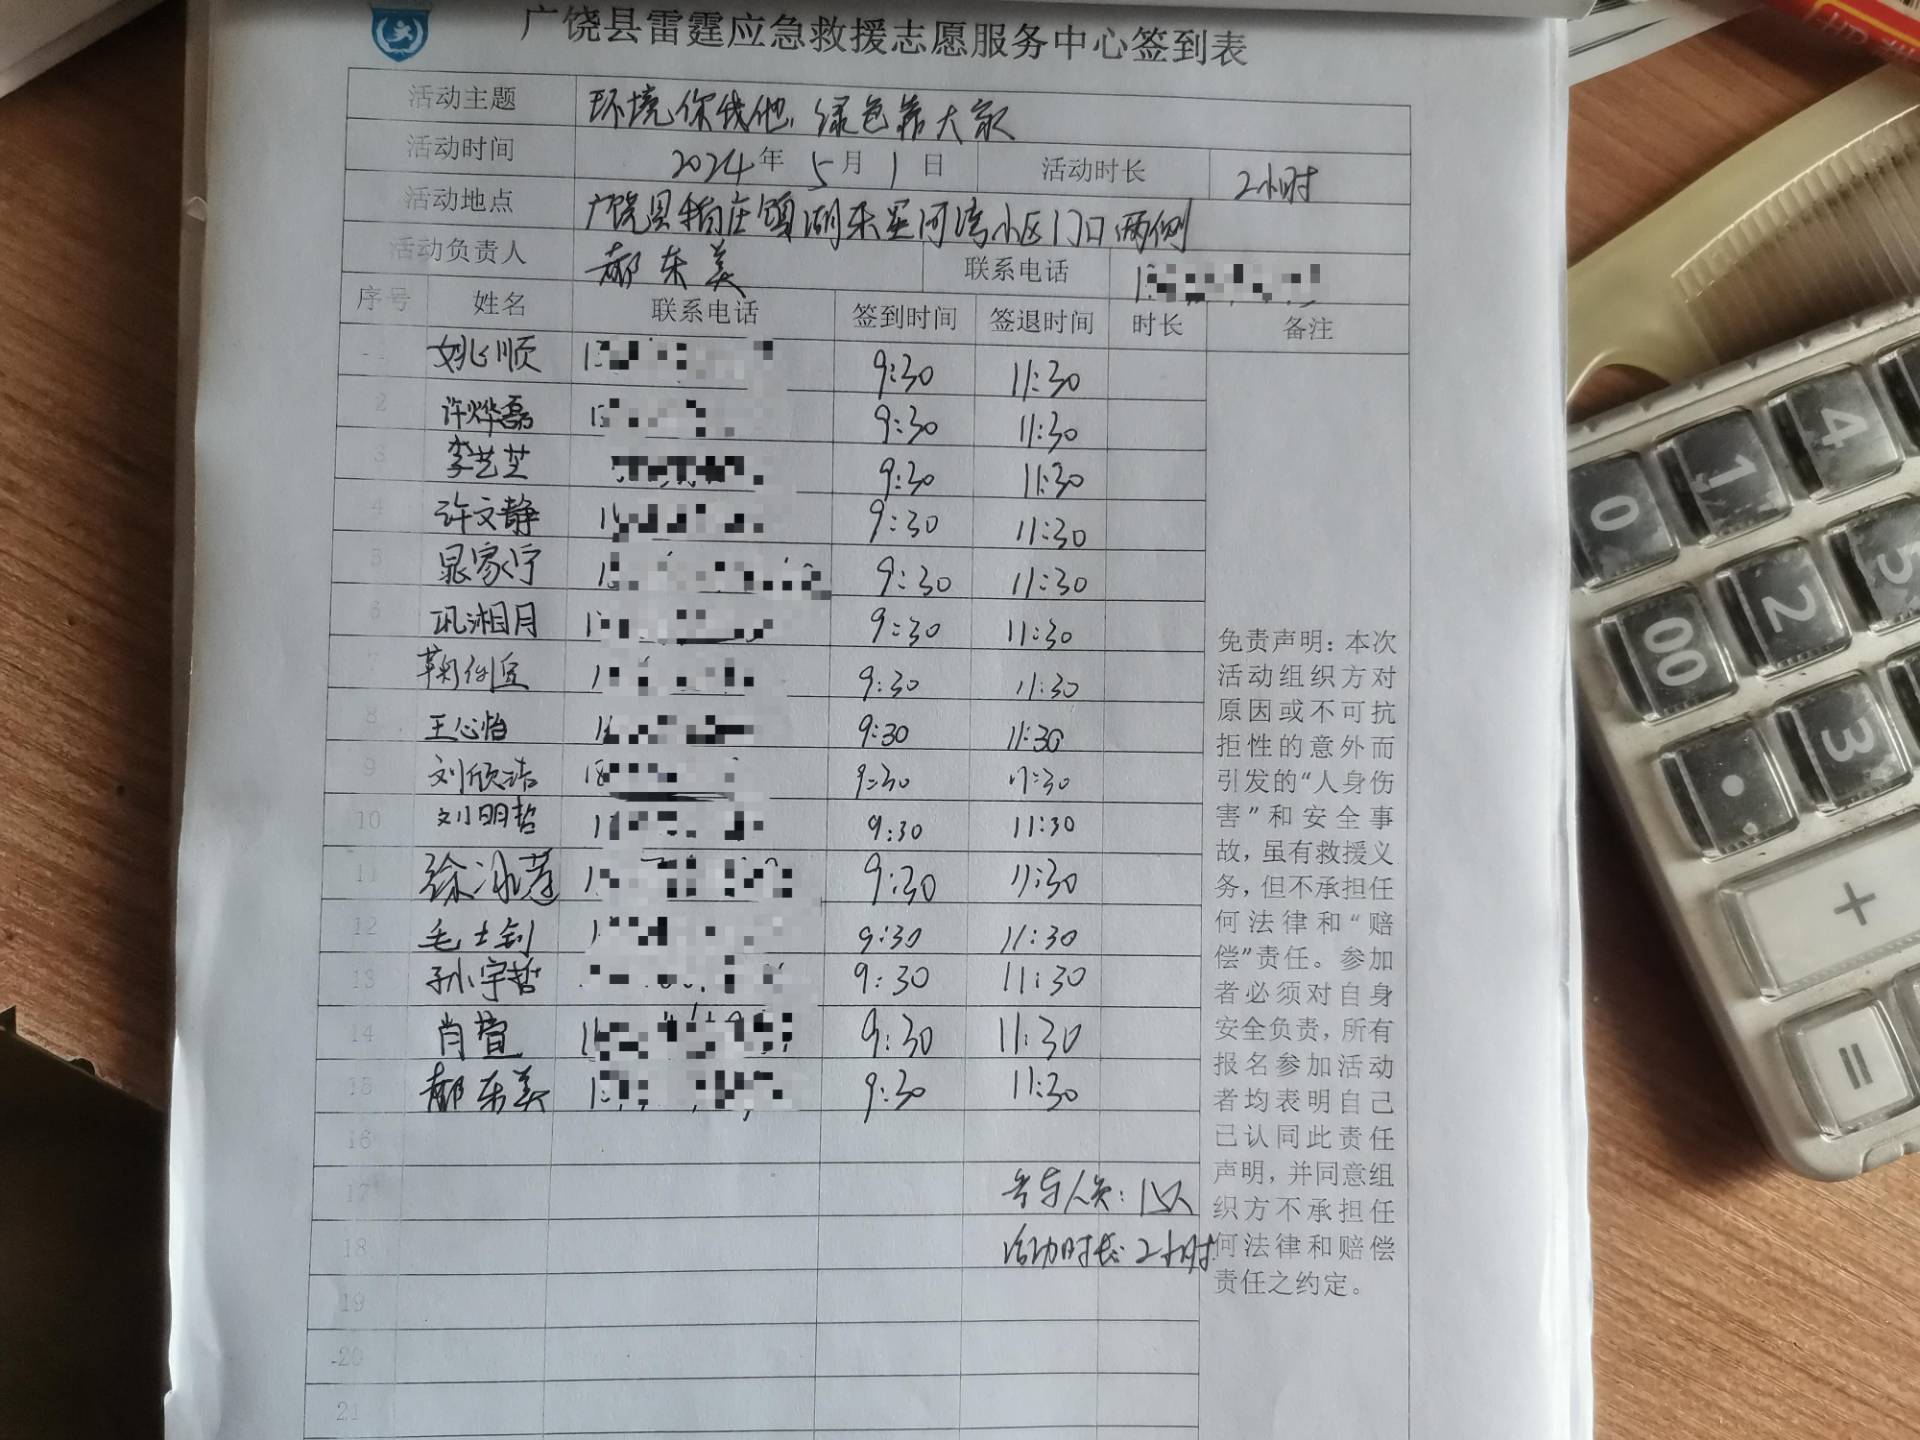 广饶县雷霆应急救援志愿服务中心签到表
活动主题 环境你我他,绿色靠大家
活动时间 2024年5月1日 活动时长 2小时
活动地点 广饶县稻庄镇湖东星河湾小区门口两侧
活动负责人 郝东美 联系电话 1
序号 姓名 联系电话 签到时间 签退时间 时长 备注
1 姚顺 1 9:30 11:30
2 许烨磊 1 9:30 11:30
3 李艺芝 9:30 11:30
4 许文静 1 9:30 11:30
5 晁家宁 1 9:30 11:30
6 巩湘月 1 9:30 11:30
7 1 9:30 11:30
8 王心怡 1 9:30 11:30
9 刘欣洁 18 9:30 11:30
10 刘明哲 1 9:30 11:30
11 徐 1 9:30 11:30
12 毛士钊 1 9:30 11:30
13 孙宇哲 9:30 11:30
14 肖萱 1 9:30 11:30
15 郝东美 1 9:30 11:30
16
17 参与人员:15人
18 活动时长:2小时
19
20
21
免责声明:本次
活动组织方对
原因或不可抗
拒性的意外而
引发的“人身伤
害”和安全事
故,虽有救援义
务,但不承担任
何法律和“赔
偿”责任。参加
者必须对自身
安全负责,所有
报名参加活动
者均表明自己
已认同此责任
声明,并同意组
织方不承担任
何法律和赔偿
责任之约定。
0
1
4
00
2
5
•
3
+
=